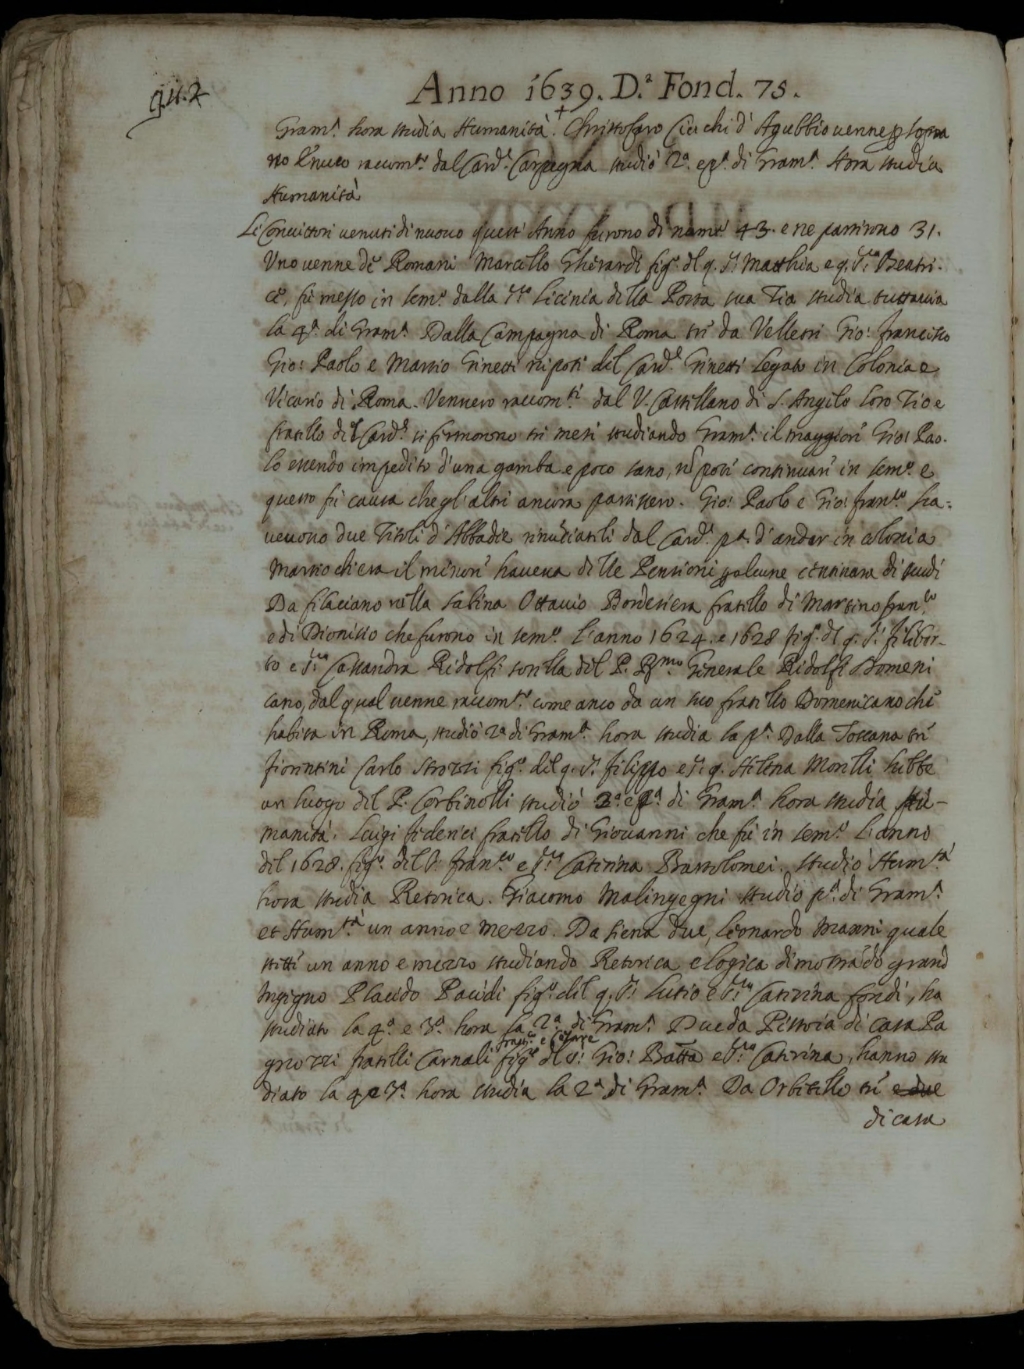 Anno 1639. D.ª Fond. 75.
Gram.ª hora studia Humanità. Christofaro Ciecchi d'Agubbio venne p sopra
no raccom.to dal Card.l Carpegna studiò 2.ª e p.ª di Gram.ª Hora studia
Humanità
Li Convittori venuti di nuovo quest'Anno furono di num.ro 43. e ne partirono 31.
Uno venne de Romani Marcello Gherardi fig.o del q. S.r Matthia e q. S.ra Beatri-
ce, fu messo in sem.o dalla S.ra Licinia della Porta sua Tia studia tuttavia
la 4.ª di Gram.ª Dalla Campagna di Roma tre da Velletri Gio: francesco
Gio: Paolo e Martio Ginetti nipoti del Card.l Ginetti Legato in Colonia e
Vicario di Roma. Vennero raccom.ti dal V. Castellano di S. Angelo loro Tio e
fratello del Card.l si fermorono tre mesi studiando Gram.ª il maggiore Gio: Pao-
lo essendo impedito d'una gamba e poco sano, nō poté continuare in sem.o e
questo fù causa che gl'altri ancora partissero. Gio: Paolo e Gio: fran.co ha-
vevono due Titoli d'Abbadie rinuntiatili dal Card.l p.ª d'andar in Colonia
Martio ch'era il minore haveva delle Pensioni p alcune centinara di scudi
Da filaciano nella Sabina Ottavio Bordesiera fratello di Martino fran.co
e di Dionisio che furono in sem.o l'anno 1624. e 1628 fig.o del q. S.r filiber-
to e S.ra Cassandra Ridolfi sorella del P. R.mo Generale Ridolfi Domeni
cano, dal qual venne raccom.to come anco da un suo fratello Domenicano che
habita in Roma, studiò 2.ª di Gram.ª hora studia la p.ª Dalla Toscana tre
fiorentini Carlo Strozzi fig.o del q. S.r filippo e S.ra q. Helena Morelli hebbe
un luogo del P. Corbinelli studiò 2.ª e p.ª di Gram.ª hora studia Hu-
manità. Luigi federici fratello di Giovanni che fù in sem.o l'anno
del 1628. fig.o del S. fran.co e S.ra Caterina Bartolomei. Studiò Hum.tà
hora studia Retorica. Giacomo Malingegni studiò p.ª di Gram.ª
et Hum.tà un anno e mezzo. Da Siena due, Leonardo Manni quale
stette un anno e mezzo studiando Retorica e logica dimostrādo grand
Ingegno Placido Pacidi fig.o del q. S.r Lutio e S.ra Caterina fondi, ha
studiato la 4.ª e 3.ª hora la 2.ª di Gram.ª Due da Pistoia di casa Pa
fran.co e Cesare
gnozzi fratelli Carnali fig.i del S.r Gio: Batta e S.ra Caterina, hanno stu
diato la 4 e 3.ª hora studia la 2.ª di Gram.ª Da Orbitello tre e due
di casa